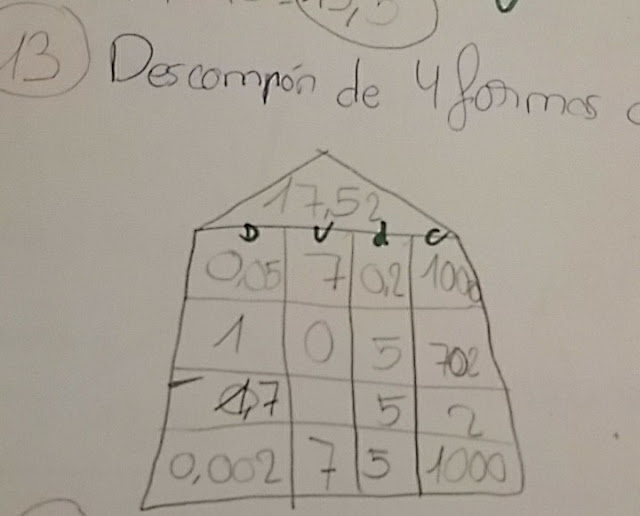 13,5
13 Descompón de 4 formas
17,52
D U d C
0,05 7 0,2 1000
1 0 5 702
1,7 5 2
0,002 7 5 1000